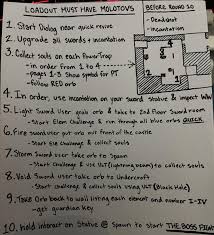 LOADOUT MUST HAVE MOLOTOVS
BEFORE ROUND 10
- Deadshot
- incantation
1. Start Dialog near quick revive
2. Upgrade all swords + incantation
3. Collect souls on each PowerTrap
- in order from 1 to 4
- pages 1-3 Show symbol for PT
- follow RED orb
4. In order, use incantation on your sword statue & impact
5. Light Sword User grab orb & take to 2nd Floor Sword room
- Start Elem Challenge & run through all blue orbs QUICK
6. Fire sword user put orb out front of the castle
- Start Ele challenge & collect souls
7. Storm Sword user take orb to Spawn
- Start challenge & use ULT (Lightning room) to collect souls
8. Void Sword user take orb to Undercroft
- Start challenge & collect souls using ULT (Black Hole)
9. Take Orb back to wall listing each element and number I-IV
- get guardian key
10. hold interact on Statue @ Spawn to start THE BOSS FIGHT